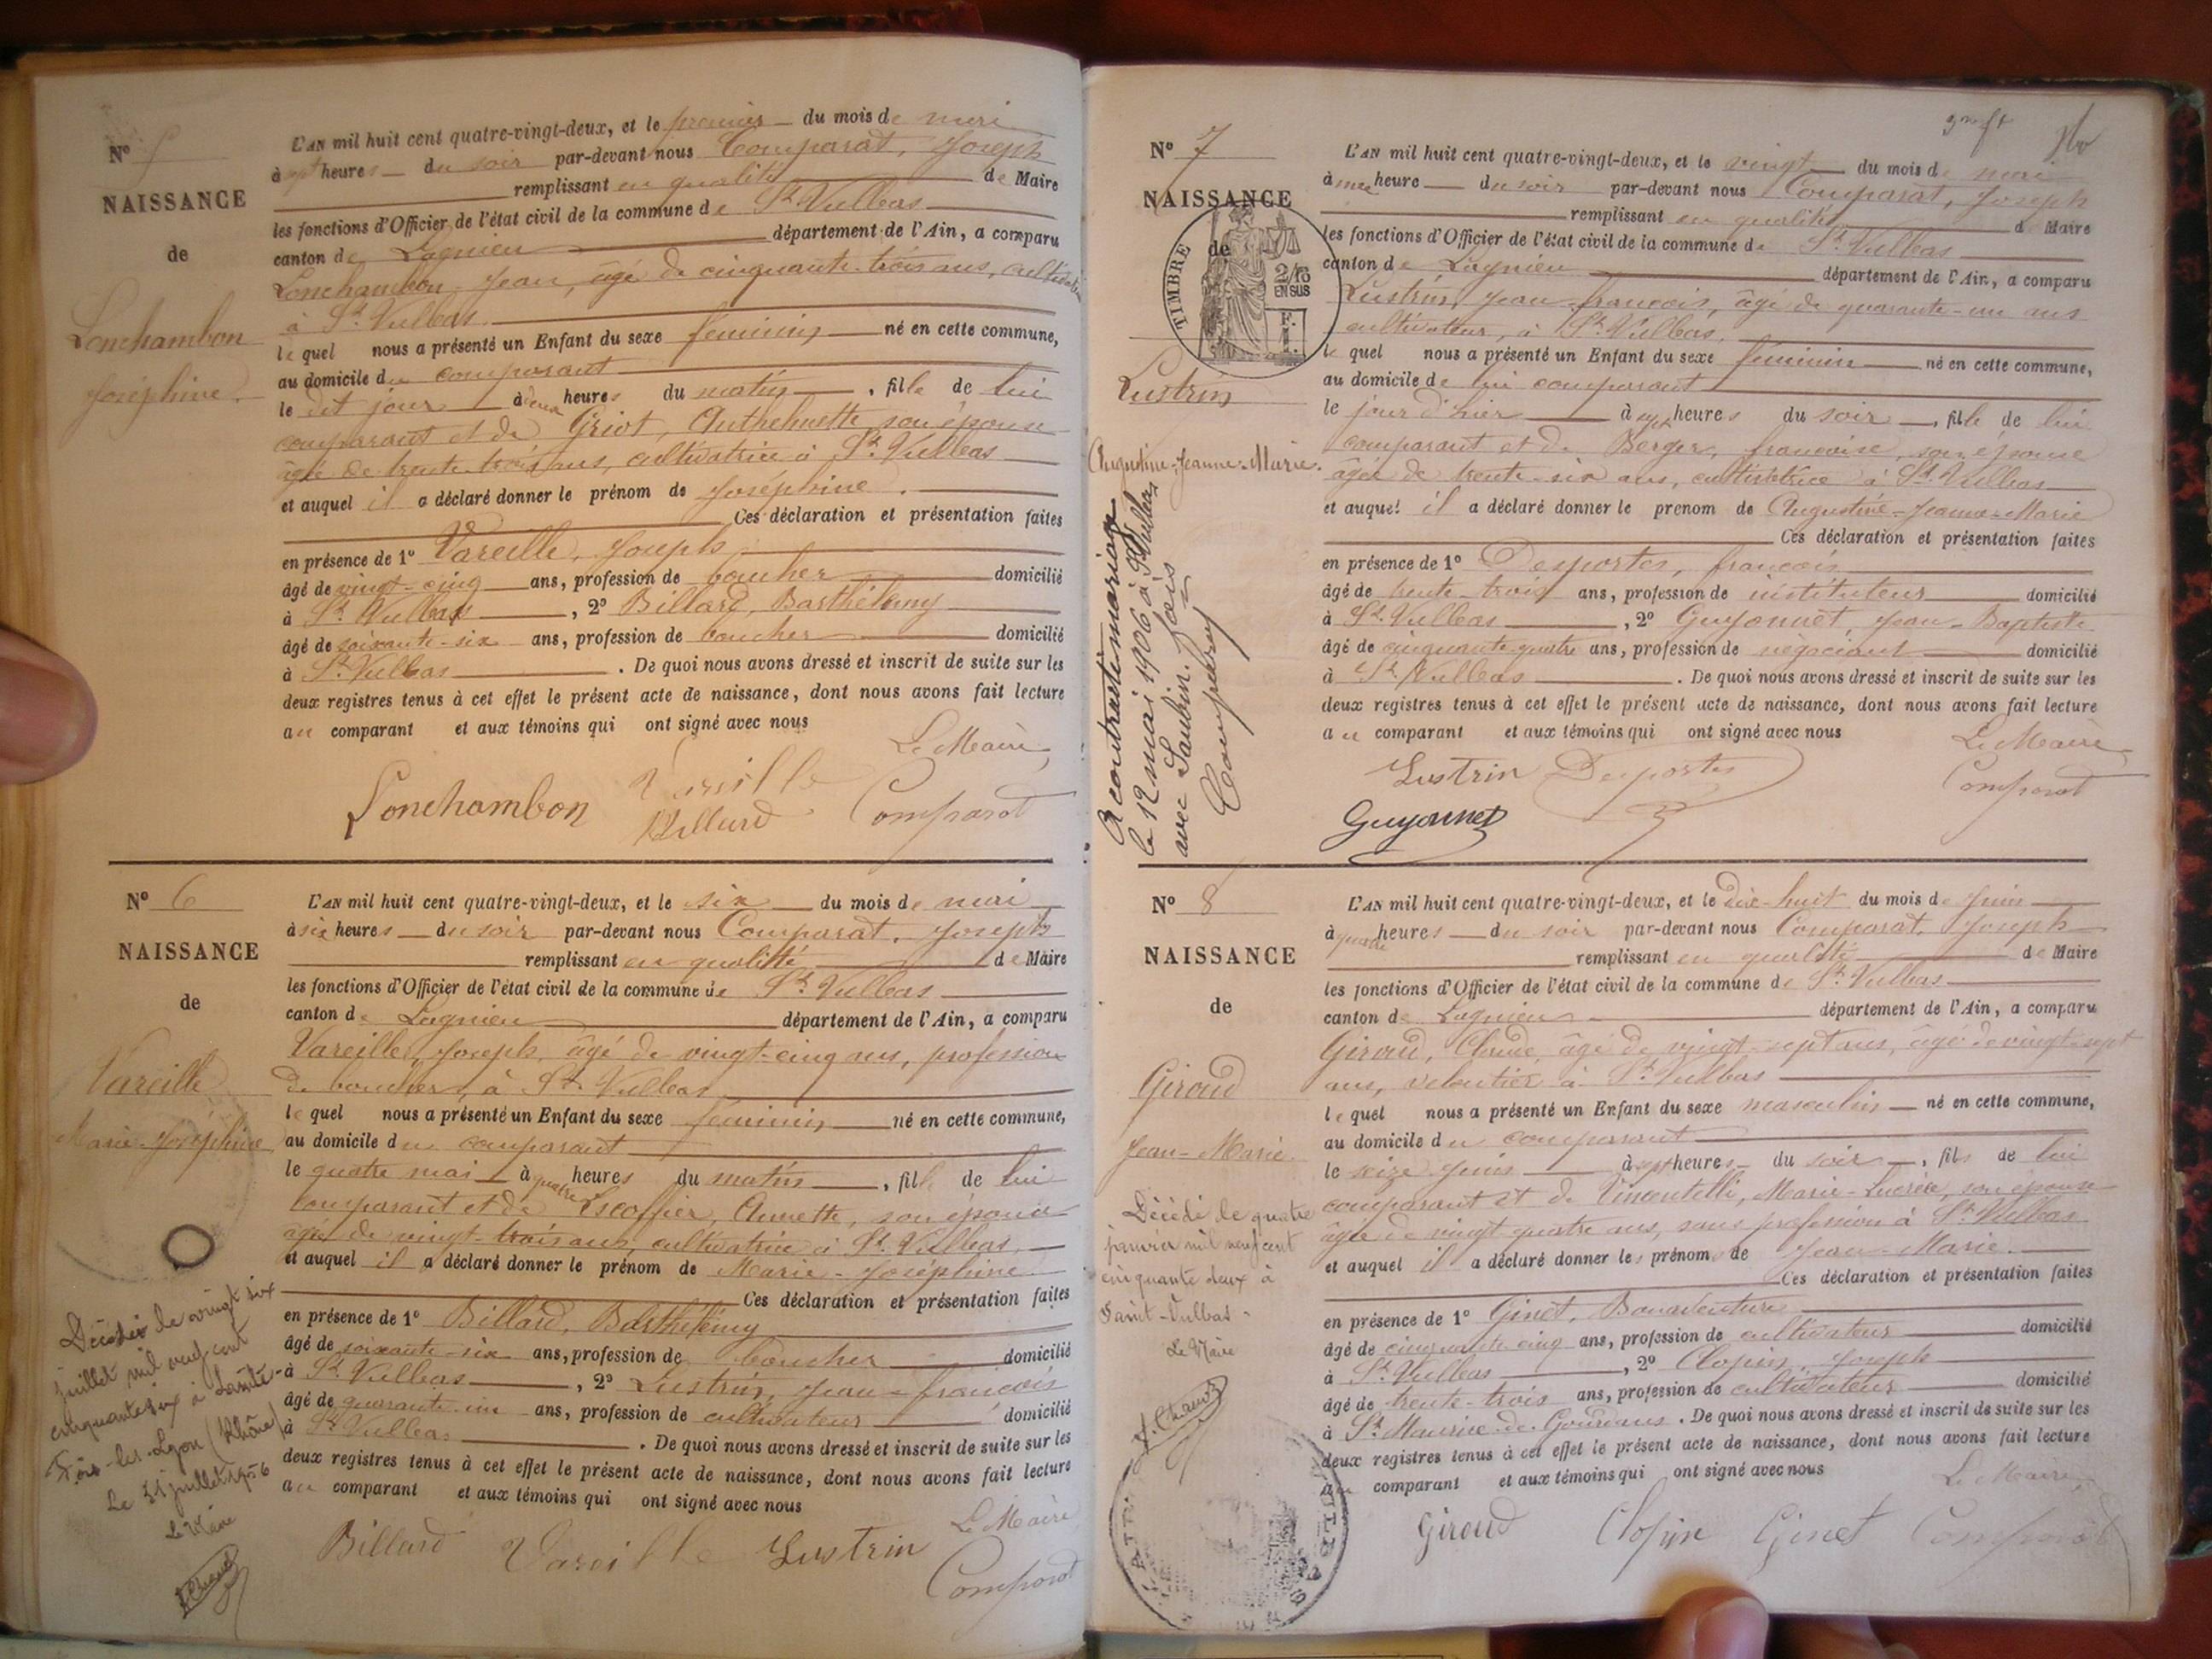 Nº 5
NAISSANCE
de
Lonchambon
Joséphine.
L'AN mil huit cent quatre-vingt-deux, et le premier du mois de mai
à sept heures du soir par-devant nous Comparat, Joseph
remplissant en qualité de Maire
les fonctions d'Officier de l'état civil de la commune de St. Vulbas
canton de Lagnieu département de l'Ain, a comparu
Lonchambon Jean, âgé de cinquante-trois ans, cultivateur
à St. Vulbas
lequel nous a présenté un Enfant du sexe féminin né en cette commune,
au domicile du comparant
le dit jour à deux heures du matin, fille de lui
comparant et de Griot, Anthelmette son épouse
âgée de trente-trois ans, cultivatrice à St. Vulbas
et auquel il a déclaré donner le prénom de Joséphine.
Ces déclaration et présentation faites
en présence de 1º Vareille, Joseph
âgé de vingt-cinq ans, profession de boucher domicilié
à St. Vulbas, 2º Billard, Barthélemy
âgé de soixante-six ans, profession de boucher domicilié
à St. Vulbas. De quoi nous avons dressé et inscrit de suite sur les
deux registres tenus à cet effet le présent acte de naissance, dont nous avons fait lecture
au comparant et aux témoins qui ont signé avec nous
Le Maire,
Lonchambon Vareille Comparat
Billard
Nº 6
NAISSANCE
de
Vareille
Marie-Joséphine
Décédée le vingt six
juillet mil neuf cent
cinquante six à Sainte-
Foix-les-Lyon (Rhône)
Le 31 juillet 1956
Le Maire
L'AN mil huit cent quatre-vingt-deux, et le six du mois de mai
à six heures du soir par-devant nous Comparat, Joseph
remplissant en qualité de Maire
les fonctions d'Officier de l'état civil de la commune de St. Vulbas
canton de Lagnieu département de l'Ain, a comparu
Vareille, Joseph, âgé de vingt-cinq ans, profession
de boucher, à St. Vulbas
lequel nous a présenté un Enfant du sexe féminin né en cette commune,
au domicile du comparant
le quatre mai à quatre heures du matin, fille de lui
comparant et de Escoffier, Annette, son épouse
âgée de vingt-trois ans, cultivatrice à St. Vulbas
et auquel il a déclaré donner le prénom de Marie-Joséphine
Ces déclaration et présentation faites
en présence de 1º Billard, Barthélémy
âgé de soixante-six ans, profession de boucher domicilié
à St. Vulbas, 2º Lustrin, Jean-françois
âgé de quarante-un ans, profession de cultivateur domicilié
à St. Vulbas. De quoi nous avons dressé et inscrit de suite sur les
deux registres tenus à cet effet le présent acte de naissance, dont nous avons fait lecture
au comparant et aux témoins qui ont signé avec nous
Le Maire
Billard Vareille Lustrin Comparat
Nº 7
NAISSANCE
de
TIMBRE
2/10
EN SUS
F.
1.
Lustrin
Augustine-Jeanne-Marie.
A contracté mariage
le 12 mai 1906 à St Vulbas
avec Saubin.
L'AN mil huit cent quatre-vingt-deux, et le vingt du mois de mai
à heure du soir par-devant nous Comparat, Joseph
remplissant en qualité de Maire
les fonctions d'Officier de l'état civil de la commune de St. Vulbas
canton de Lagnieu département de l'Ain, a comparu
Lustrin, Jean-françois, âgé de quarante-un ans
cultivateur, à St. Vulbas,
lequel nous a présenté un Enfant du sexe féminin né en cette commune,
au domicile de lui comparant
le jour d'hier à sept heures du soir, fille de lui
comparant et de Berger, françoise, son épouse
âgée de trente-six ans, cultivatrice à St. Vulbas
et auquel il a déclaré donner le prenom de Augustine-Jeanne-Marie
Ces déclaration et présentation faites
en présence de 1º Desportes, françois
âgé de trente-trois ans, profession de instituteur domicilié
à St. Vulbas, 2º Guyonnet, Jean-Baptiste
âgé de cinquante-quatre ans, profession de négociant domicilié
à St. Vulbas. De quoi nous avons dressé et inscrit de suite sur les
deux registres tenus à cet effet le présent acte de naissance, dont nous avons fait lecture
au comparant et aux témoins qui ont signé avec nous
Le Maire
Lustrin Desportes Comparat
Guyonnet
Nº 8
NAISSANCE
de
Giroud
Jean-Marie.
Décédé le quatre
janvier mil neuf cent
cinquante deux à
Saint-Vulbas-
Le Maire
L'AN mil huit cent quatre-vingt-deux, et le dix-huit du mois de Juin
à quatre heures du soir par-devant nous Comparat, Joseph
remplissant en qualité de Maire
les fonctions d'Officier de l'état civil de la commune de St. Vulbas
canton de Lagnieu département de l'Ain, a comparu
Giroud, Claude, âgé de vingt-sept ans, âgé de vingt-sept
ans, veloutier à St. Vulbas
lequel nous a présenté un Enfant du sexe masculin né en cette commune,
au domicile du comparant
le seize Juin à sept heures du soir, fils de lui
comparant et de Vincentelli, Marie-Lucrèce, son épouse
âgée de vingt-quatre ans, sans profession à St. Vulbas
et auquel il a déclaré donner les prénoms de Jean-Marie.
Ces déclaration et présentation faites
en présence de 1º Ginet, Bonaventure
âgé de cinquante-cinq ans, profession de cultivateur domicilié
à St. Vulbas, 2º Clopin, Joseph
âgé de trente-trois ans, profession de cultivateur domicilié
à St. Maurice-de-Gourdans. De quoi nous avons dressé et inscrit de suite sur les
deux registres tenus à cet effet le présent acte de naissance, dont nous avons fait lecture
au comparant et aux témoins qui ont signé avec nous
Le Maire,
Giroud Clopin Ginet Comparat